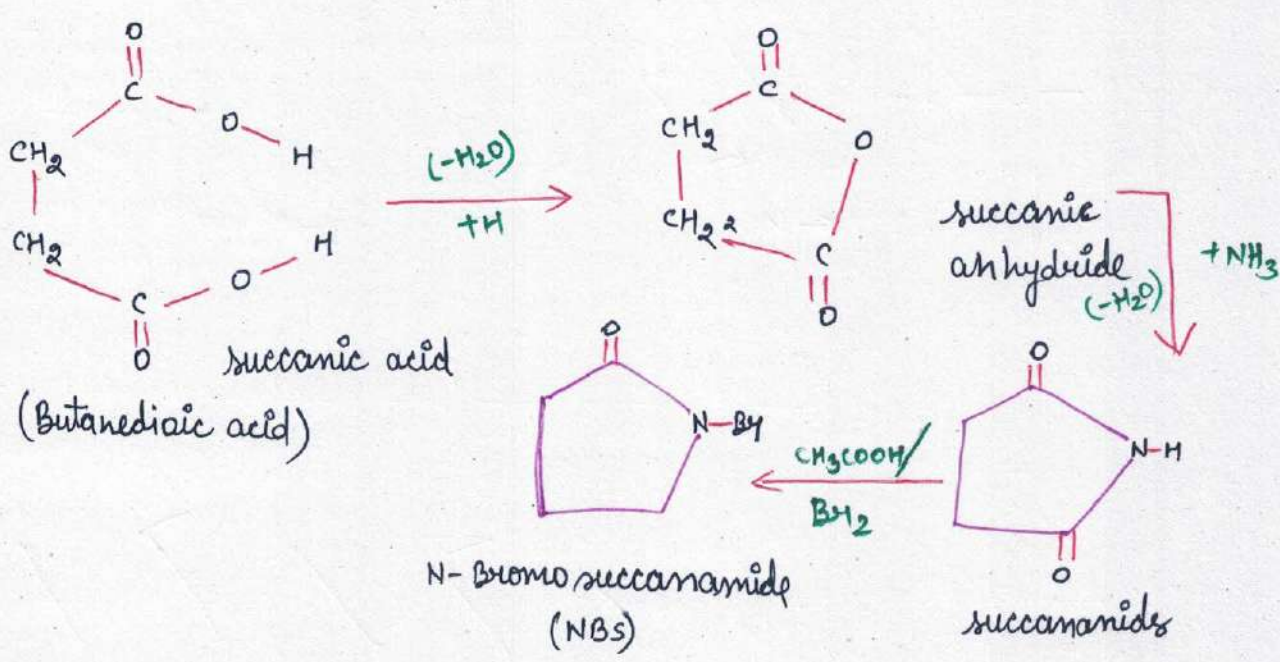 O
C
O
H
CH2
CH2
H
O
C
O
succanic acid
(Butanediaic acid)
(-H2O)
+H
O
C
CH2
O
CH2 2
C
O
succanic
anhydride
+NH3
(-H2O)
O
N-H
O
succanamids
CH3COOH/
Br2
O
N-Br
N-Bromosuccanamide
(NBS)